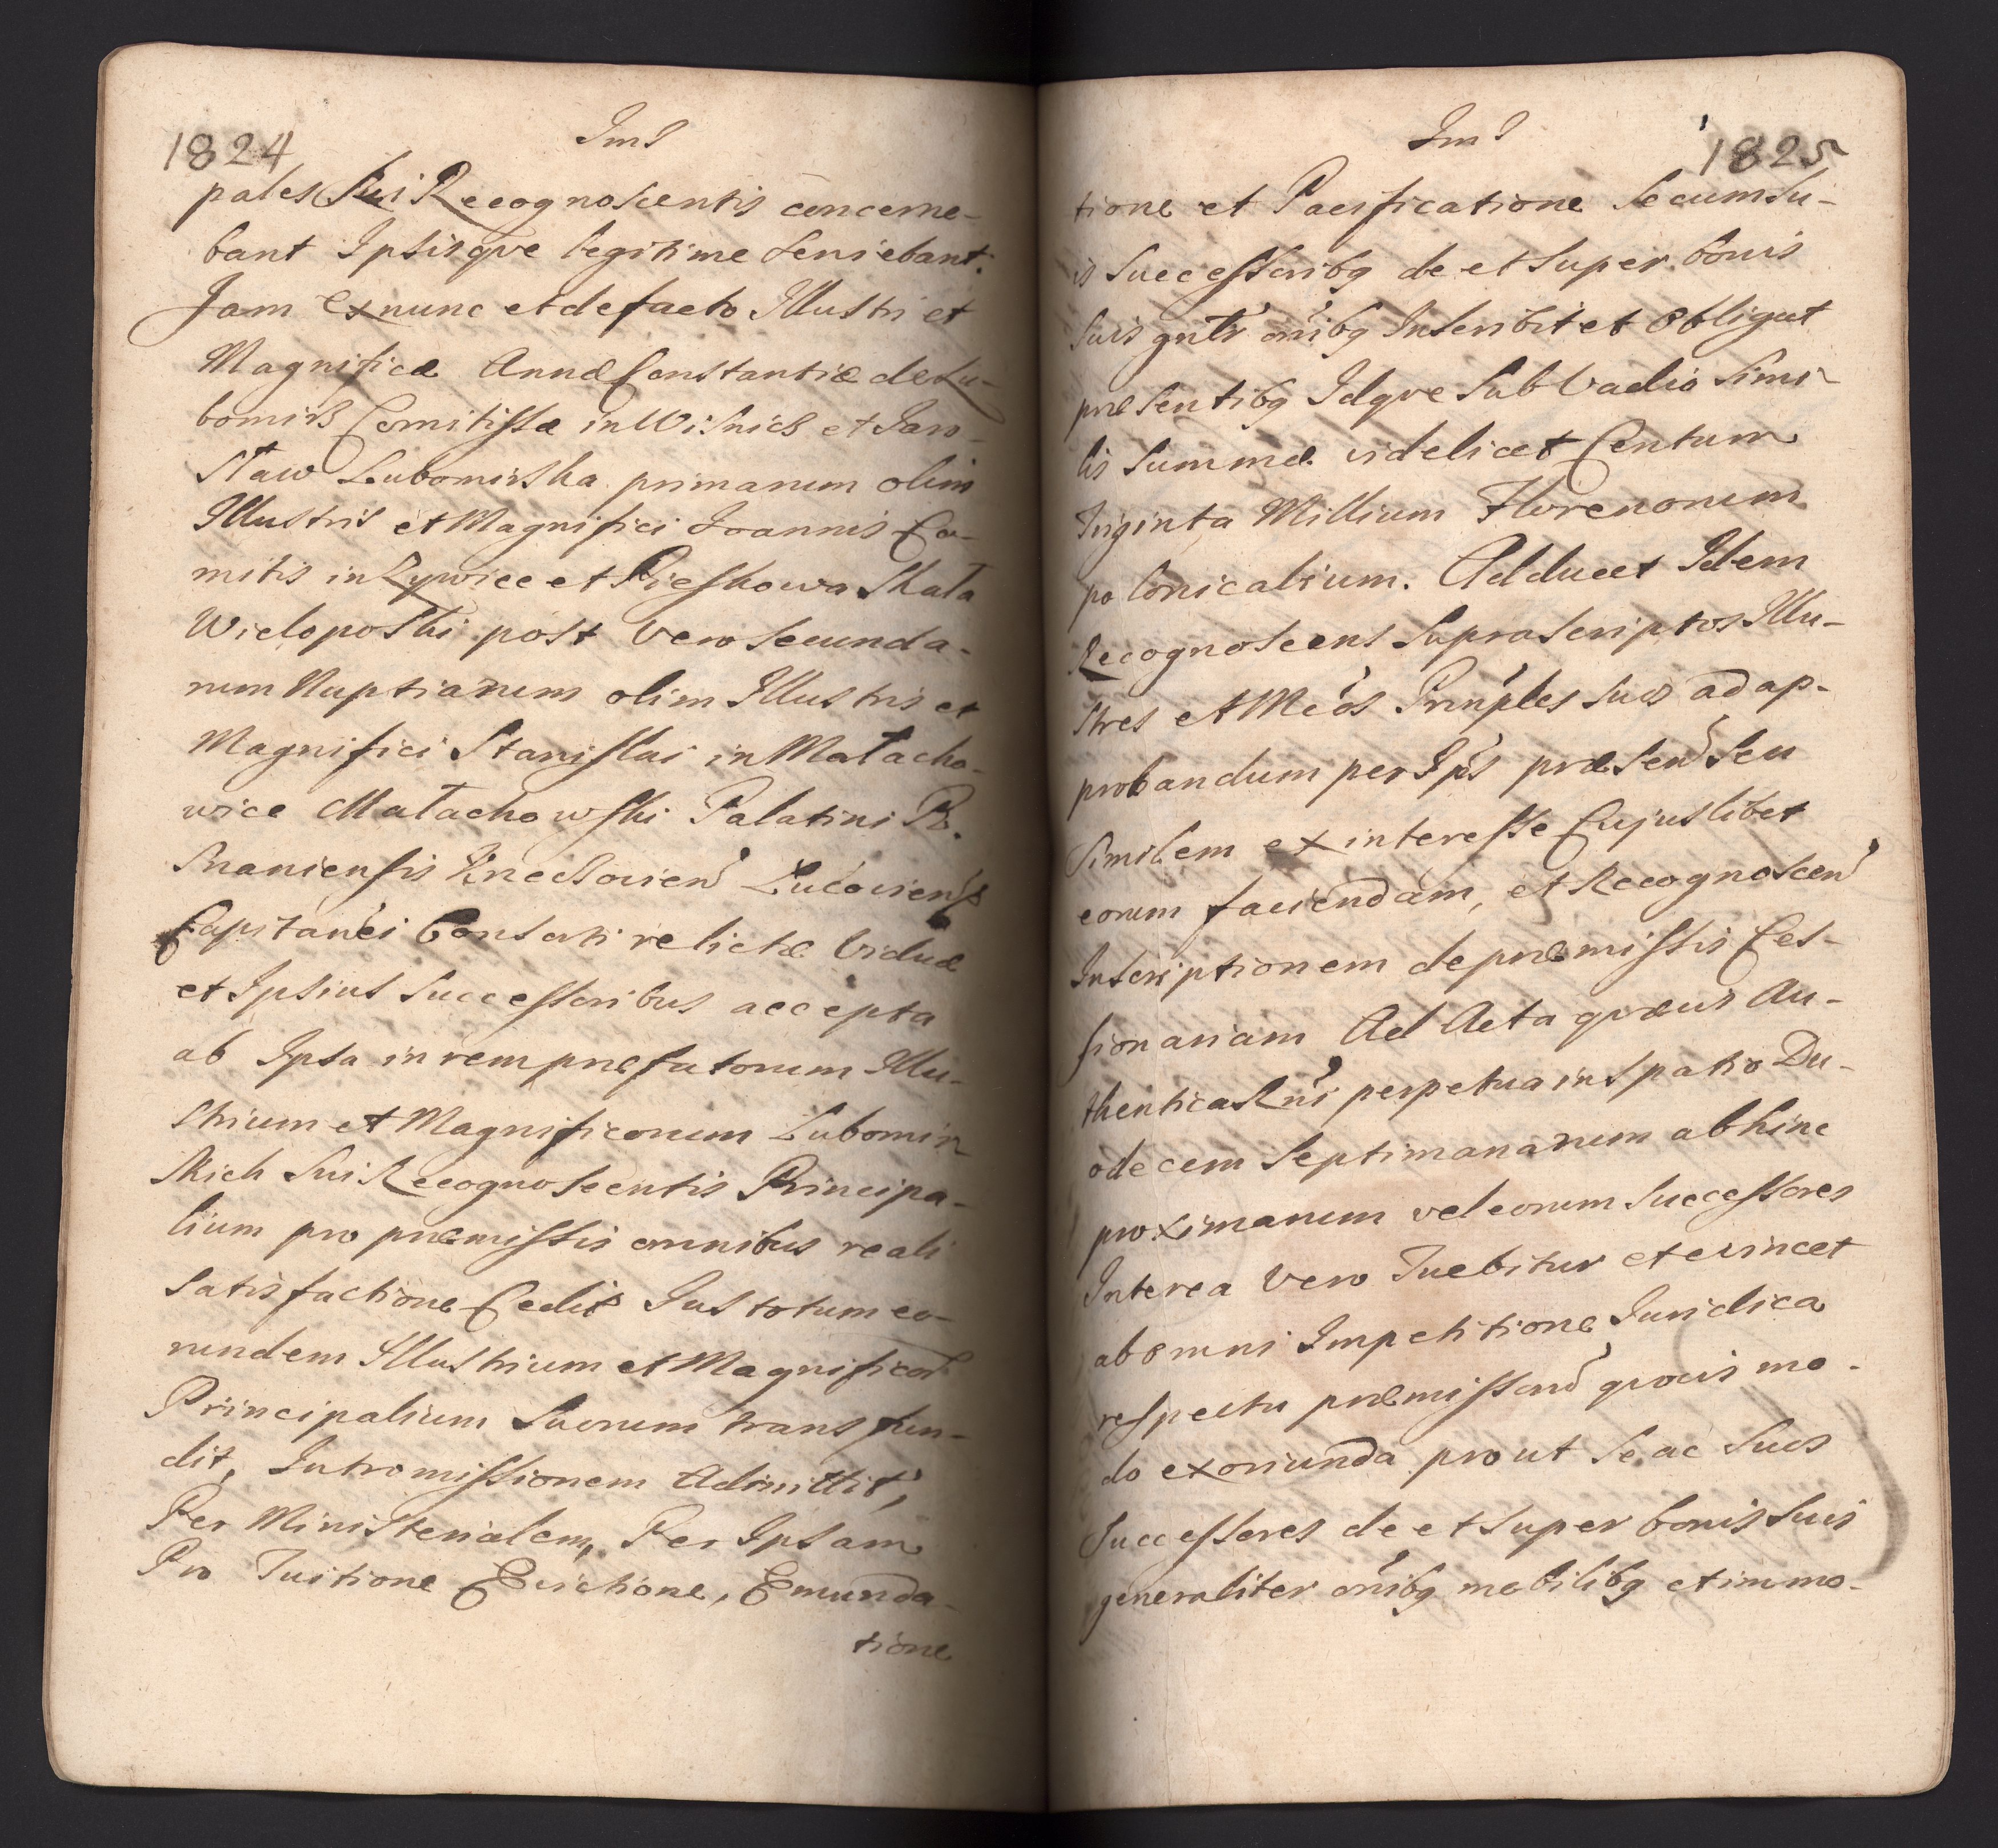 1824
Ims
pales Sui Recognoscentis concerne-
bant Ipsisqve legitime serviebant.
Jam ex nunc et de facto Illustri et
Magnificæ Annæ Constantiæ de Lu-
bomirs Comitissæ in Wisnicz et Jaro-
sław Lubomirska primarum olim
Illustris et Magnifici Joannis Co-
mitis in Zywiec et Pieskowa Skała
Wielopolski post vero secunda-
rum Nuptiarum olim Illustris et
Magnifici Stanislai in Małacho-
wice Małachowski Palatini Po-
snaniensis Lucovien
Capitanei Consorti relictæ Viduæ
et Ipsius Successoribus accepta
ab Ipsa in rem præfatorum Illu-
strium et Magnificorum Lubomir-
skich Sui Recognoscentis Principa-
lium pro præmissis omnibus reali
satisfactione Cedit Jus totum eo-
rundem Illustrium et Magnificor
Principalium Suorum transfun-
dit, Intromissionem Admittit,
Per Ministerialem, Per Ipsam
Pro Tuitione Evictione, Emunda-
tione
Ims
1825
tione et Pacificatione Secum Su-
is Successoribq de et super bonis
Suis gnlr oñibq Inscribit et Obligat
præsentibq Idqve Sub Vadio Simi-
lis Summæ videlicet Centum
Triginta Millium Florenorum
polonicalium. Adducet Idem
Recognoscens Suprascriptos Illu-
stres et Mcos Prinples suos ad ap-
probandum per Ips præsen seu
Similem ex interesse Cujuslibet
eorum faciendam, et Recognoscen
Inscriptionem de præmissis Ces-
sionariam Ad Acta qvævis Au-
thentica Rni perpetua in Spatio Du-
odecem Septimanarum abhinc
proximarum vel eorum Successores
Interea Vero Tuebitur et evincet
ab omni Impetitione Juridica
respectu præmissor qvovis mo-
do exoriunda prout Se ac Suos
Successores de et super bonis Suis
generaliter oñibq mobilibq et immo-